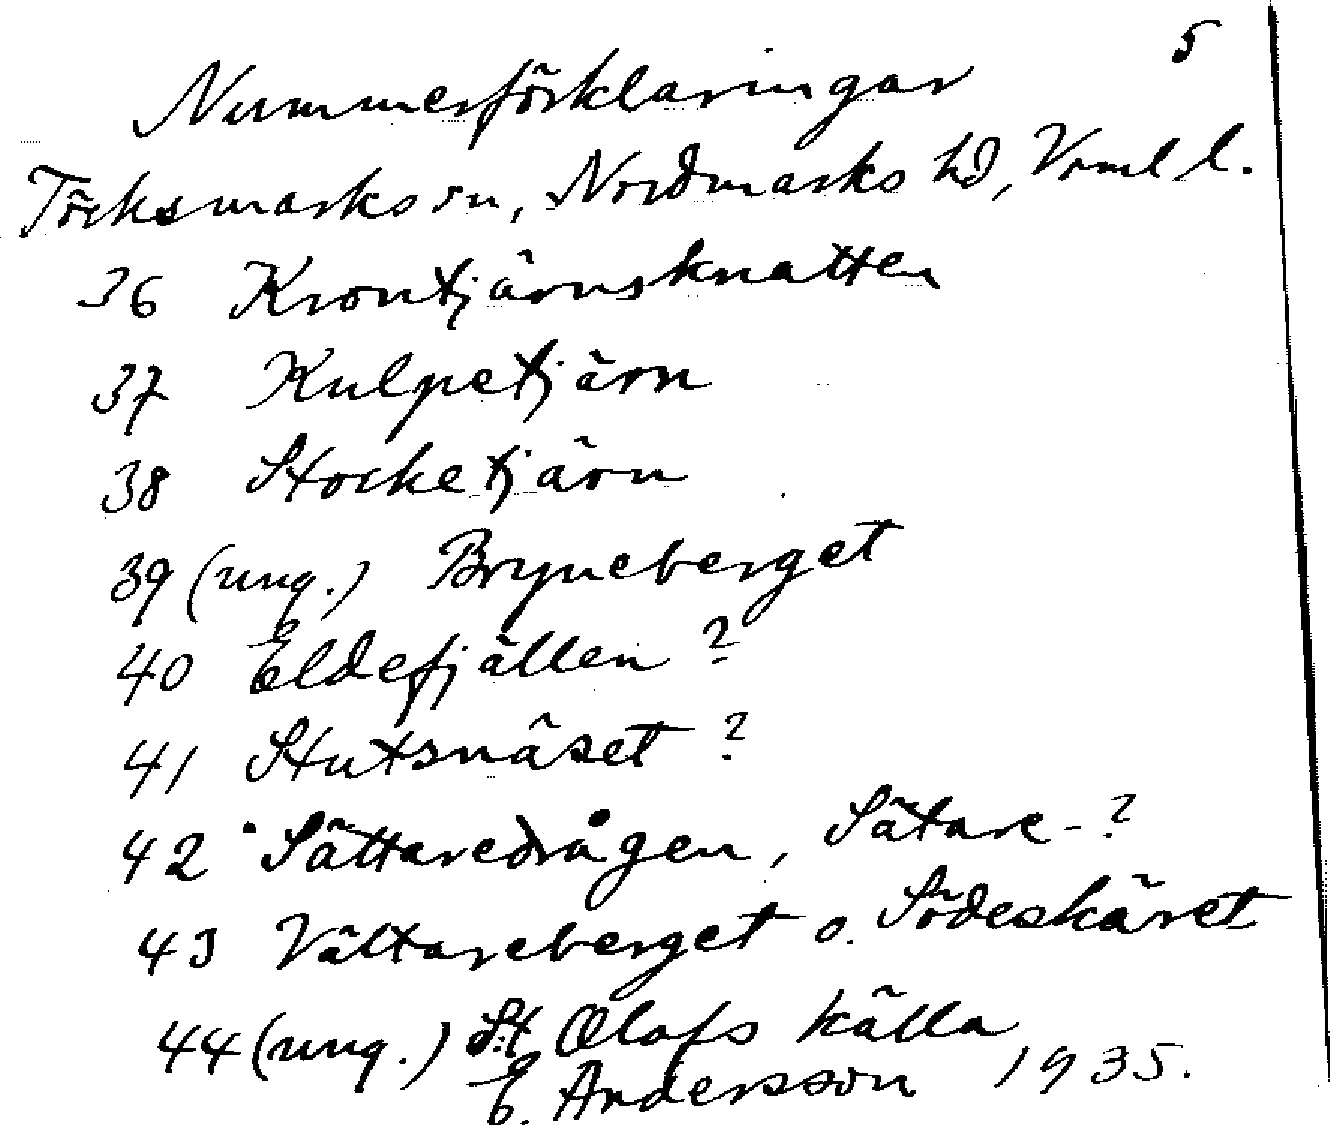 5
Nummerförklaringar
Töcksmarks sn, Nordmarks hd, Vrml l.
36 Krontjärnsknatten
37 Kulpetjärn
38 Stocketjärn
39 (ung.) Bryneberget
40 Eldefjällen ?
41 Stutsnäset ?
42 Sättaredrågen, Sätare- ?
43 Vältareberget o. Södeskäret
44 (ung.) St Olofs källa
E. Andersson 1935.